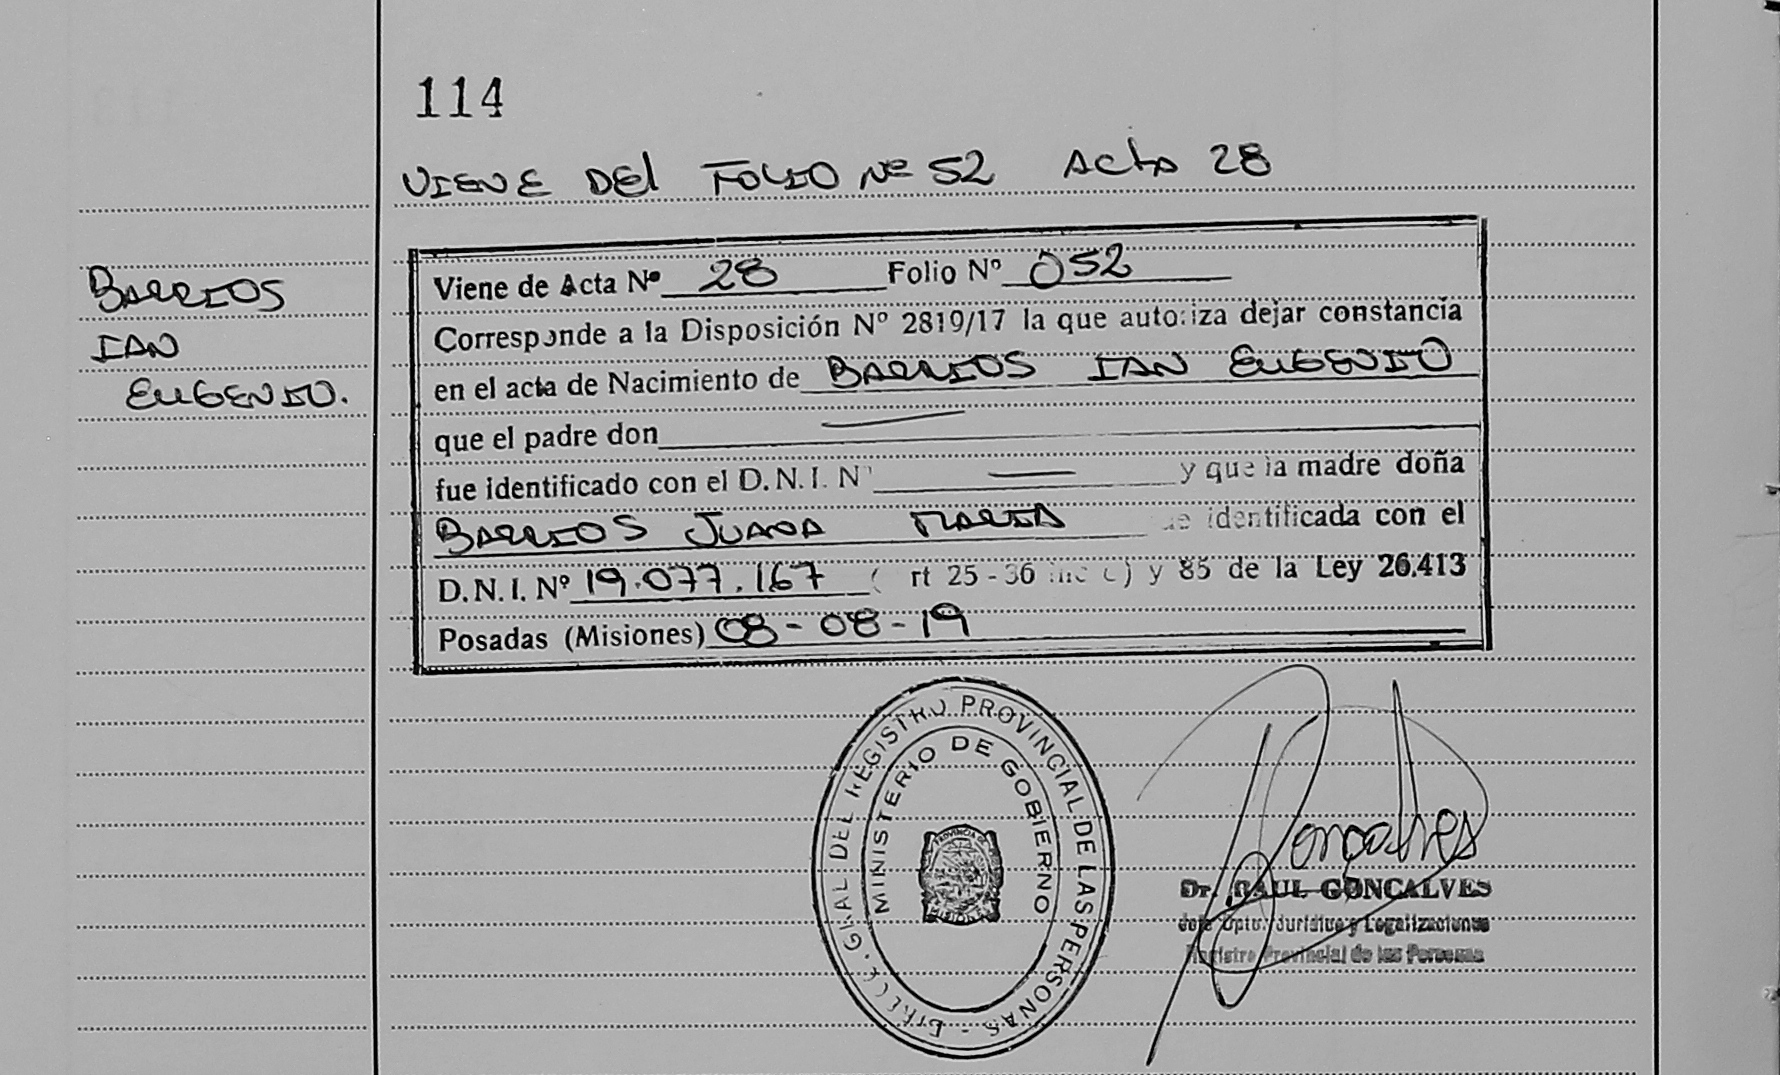 114
VIENE DEL FOLIO Nº 52 ACTA 28
BARRIOS
IAN
EUGENIO.
Viene de Acta Nº 28 Folio Nº 052
Corresponde a la Disposición Nº 2819/17 la que autoriza dejar constancia
en el acta de Nacimiento de BARRIOS IAN EUGENIO
que el padre don —
fue identificado con el D.N.I. Nº — y que la madre doña
BARRIOS JUANA MARIA identificada con el
D.N.I. Nº 19.077.167 ( rt 25 - 36 inc c) y 85 de la Ley 26.413
Posadas (Misiones) 08-08-19
DIRECC. GRAL DEL REGISTRO PROVINCIAL DE LAS PERSONAS -
MINISTERIO DE GOBIERNO
PROVINCIA DE
MISIONES
Goncalves
Dr. RAUL GONCALVES
Jefe Dpto. Jurídico y Legalizaciones
Registro Provincial de las Personas